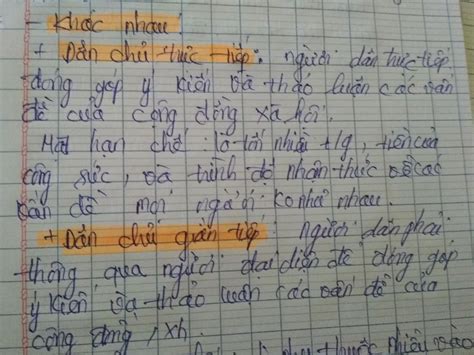 - Khác nhau:
+ Dân chủ trực tiếp: người dân trực tiếp
đóng góp ý kiến và thảo luận các vấn
đề của cộng đồng xã hội.
Mặt hạn chế: là tốn nhiều t/g, tiền của
công sức, và trình độ nhận thức về các
vấn đề mọi người ko như nhau.
+ Dân chủ gián tiếp: người dân phải
thông qua người đại diện để đóng góp
ý kiến và thảo luận các vấn đề của
cộng đồng, xh.
thuộc nhiều vào